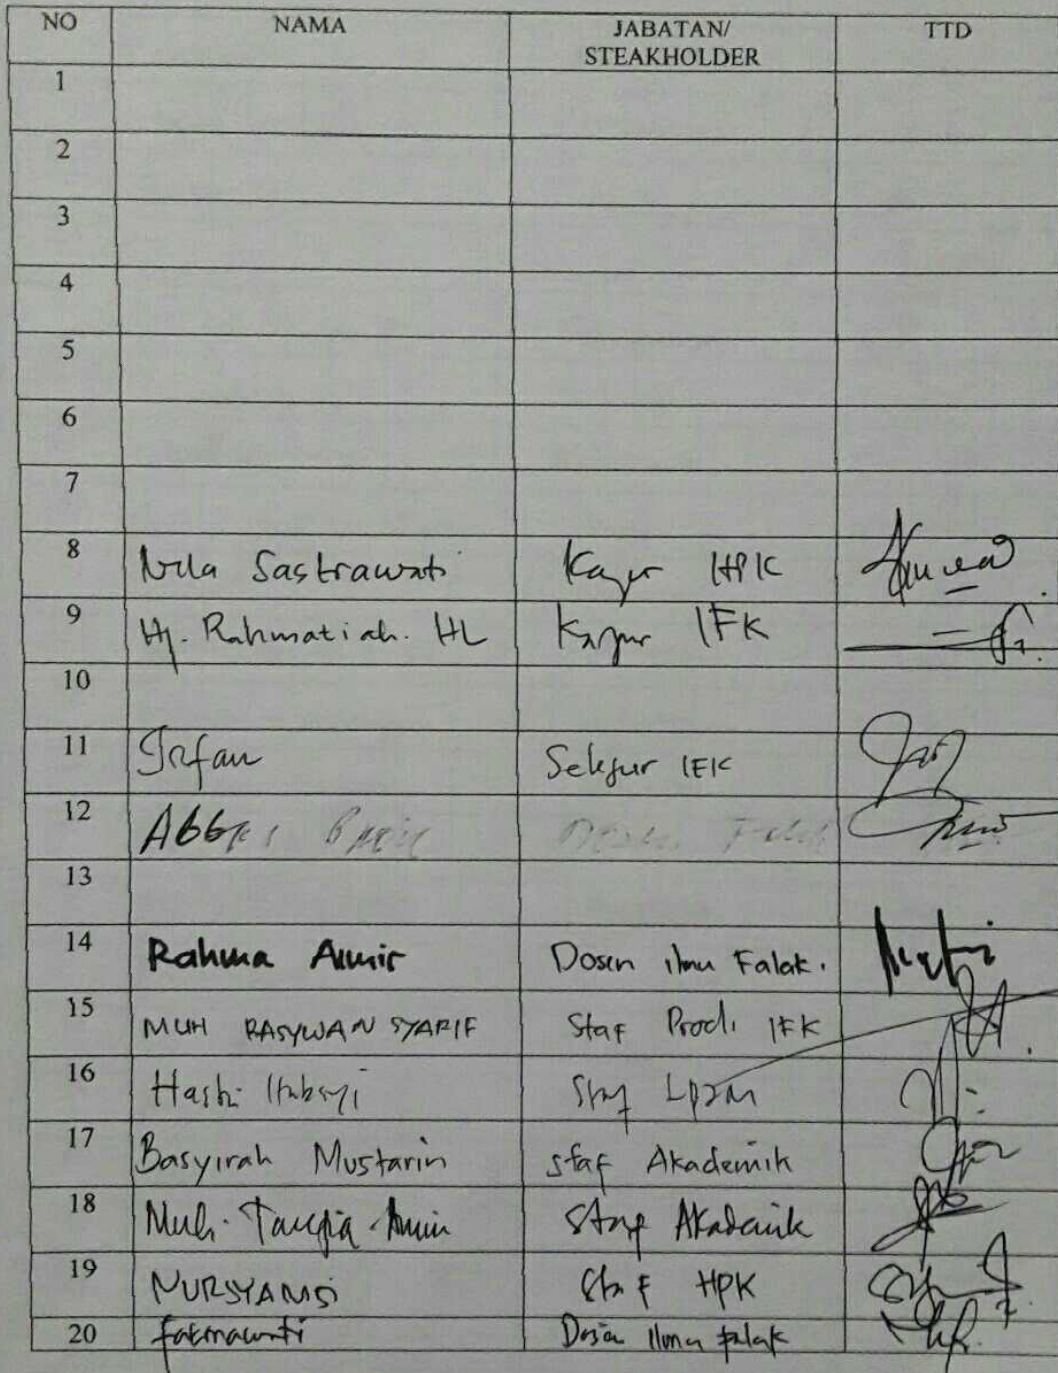 NO NAMA JABATAN/ TTD
STEAKHOLDER
1
2
3
4
5
6
7
8 Nila Sastrawati Kajur HPK
9 Hj. Rahmatiah. HL Kajur IFK
10
11 Irfan Sekjur IFK
12 Abbas
13
14 Rahma Amir Dosen ilmu Falak.
15 MUH RASYWAN SYARIF Staf Prodi IFK
16 Hasbi Staf LP2M
17 Basyirah Mustarin staf Akademik
18 Muh. Amin Staf Akademik
19 NURSYAMSI Staf HPK
20 fatmawati Dosen Ilmu falak